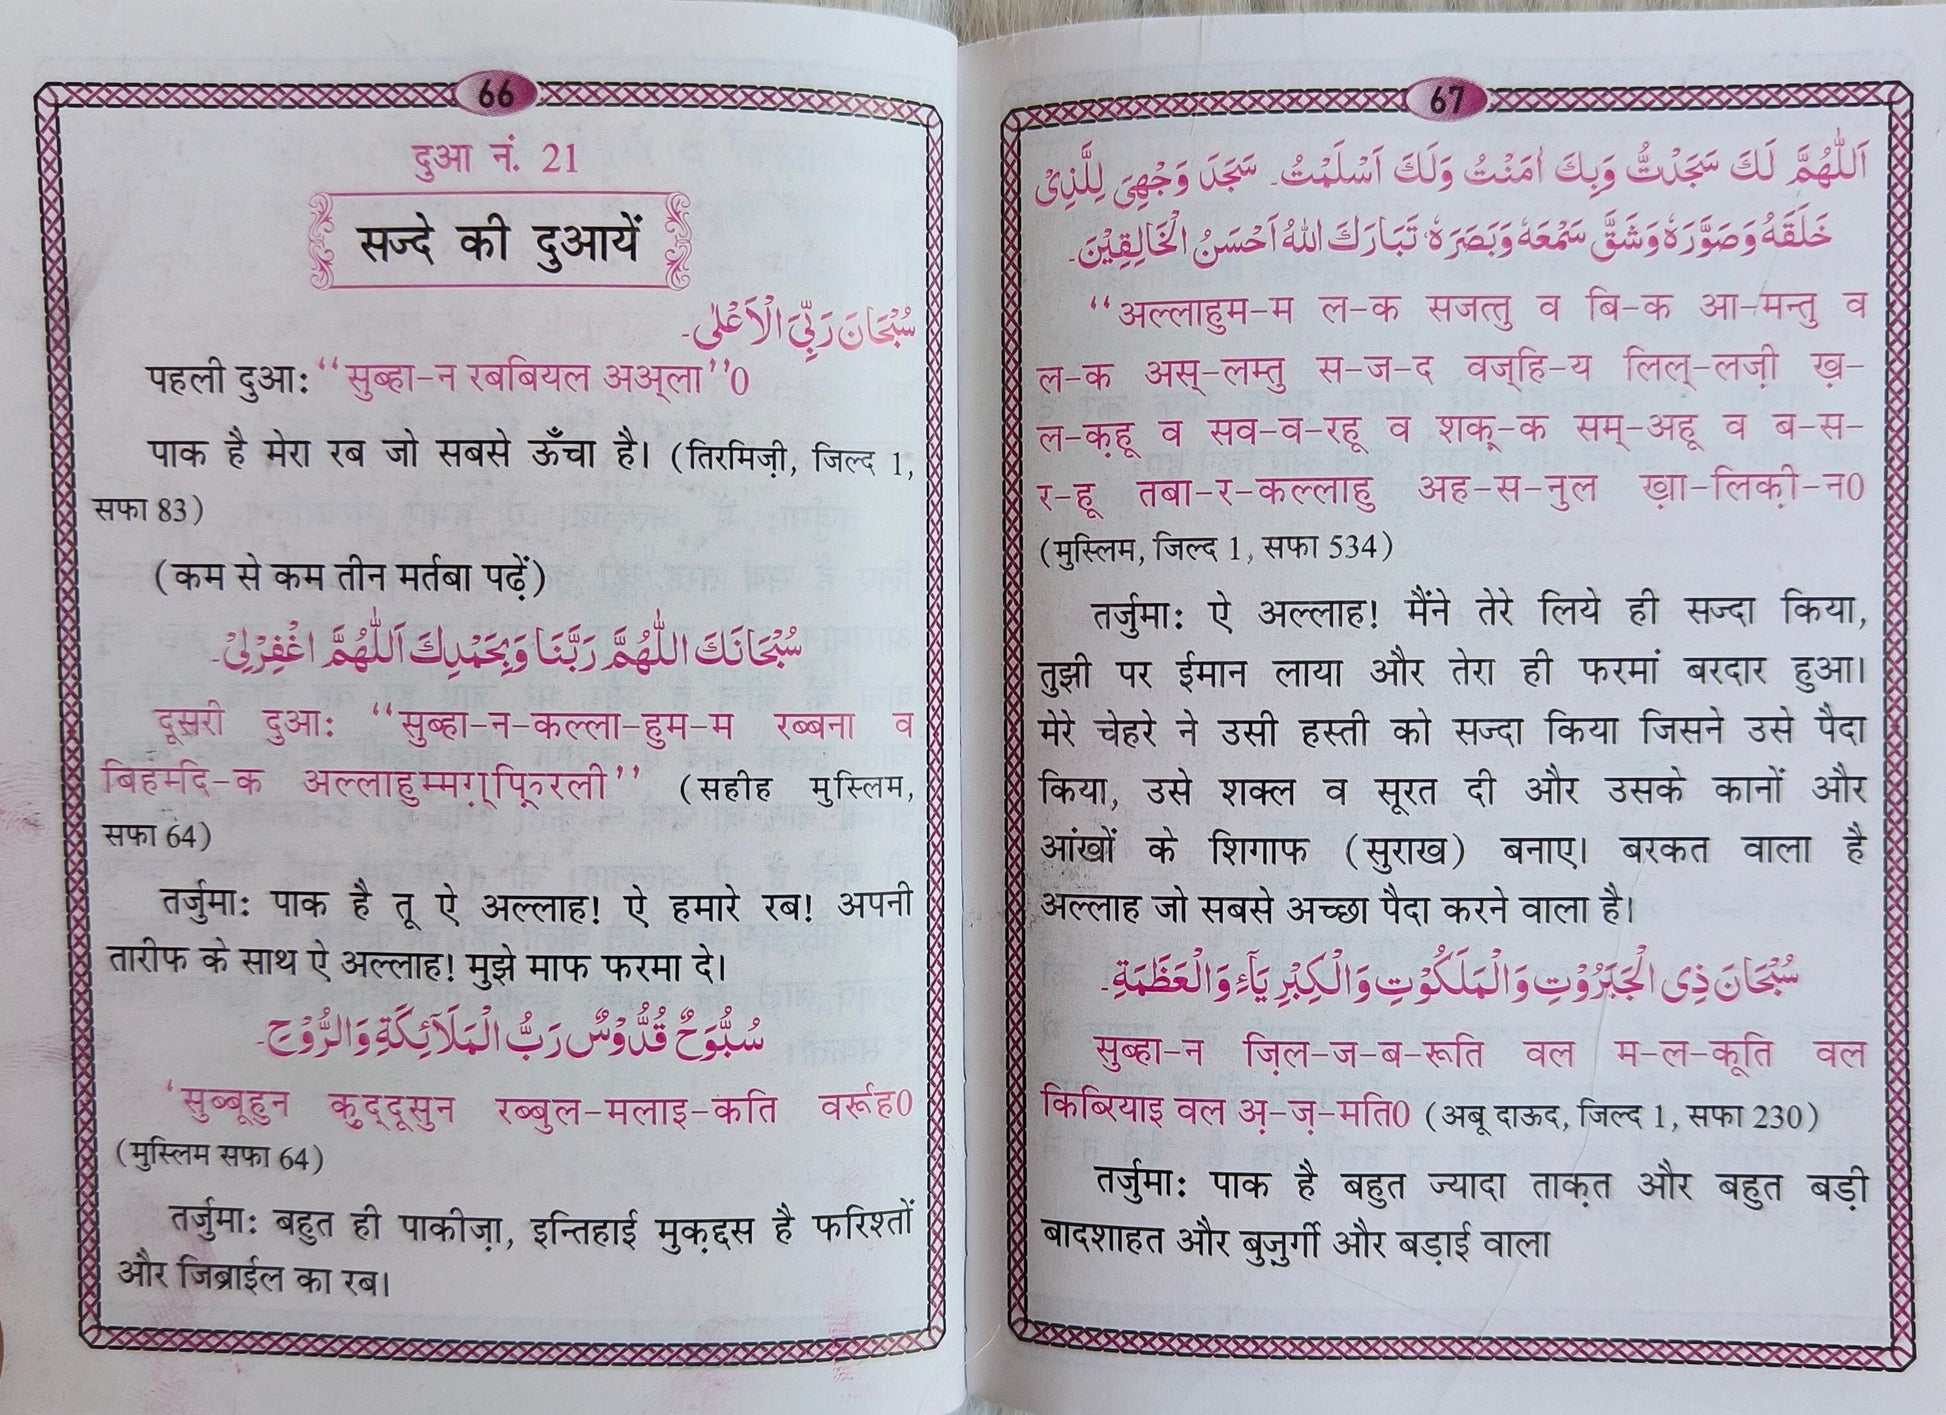 66
दुआ नं. 21
सज्दे की दुआयें
سُبْحَانَ رَبِّيَ الْاَعْلٰى۔
पहली दुआ: ‘‘सुब्हा-न रबबियल अअ्ला’’0
पाक है मेरा रब जो सबसे ऊँचा है। (तिरमिज़ी, जिल्द 1,
सफा 83)
(कम से कम तीन मर्तबा पढ़ें)
سُبْحَانَكَ اللّٰهُمَّ رَبَّنَا وَبِحَمْدِكَ اَللّٰهُمَّ اغْفِرْلِيْ۔
दूसरी दुआ: ‘‘सुब्हा-न-कल्ला-हुम-म रब्बना व
बिहमदि-क अल्लाहुम्मग़्फ़िरली’’ (सहीह मुस्लिम,
सफा 64)
तर्जुमा: पाक है तू ऐ अल्लाह! ऐ हमारे रब! अपनी
तारीफ के साथ ऐ अल्लाह! मुझे माफ फरमा दे।
سُبُّوْحٌ قُدُّوْسٌ رَبُّ الْمَلَآئِكَةِ وَالرُّوْحِ۔
‘सुब्बूहुन कुद्दूसुन रब्बुल-मलाइ-कति वर्रूह0
(मुस्लिम सफा 64)
तर्जुमा: बहुत ही पाकीज़ा, इन्तिहाई मुक़द्दस है फरिश्तों
और जिब्राईल का रब।
67
اَللّٰهُمَّ لَكَ سَجَدْتُّ وَبِكَ اٰمَنْتُ وَلَكَ اَسْلَمْتُ۔ سَجَدَ وَجْهِيَ لِلَّذِيْ
خَلَقَهٗ وَصَوَّرَهٗ وَشَقَّ سَمْعَهٗ وَبَصَرَهٗ تَبَارَكَ اللّٰهُ اَحْسَنُ الْخَالِقِيْنَ۔
‘‘अल्लाहुम-म ल-क सजत्तु व बि-क आ-मन्तु व
ल-क अस्-लम्तु स-ज-द वज्हि-य लिल्-लज़ी ख़-
ल-क़हू व सव-व-रहू व शक़्-क सम्-अहू व ब-स-
र-हू तबा-र-कल्लाहु अह-स-नुल ख़ा-लिक़ी-न0
(मुस्लिम, जिल्द 1, सफा 534)
तर्जुमा: ऐ अल्लाह! मैंने तेरे लिये ही सज्दा किया,
तुझी पर ईमान लाया और तेरा ही फरमां बरदार हुआ।
मेरे चेहरे ने उसी हस्ती को सज्दा किया जिसने उसे पैदा
किया, उसे शक्ल व सूरत दी और उसके कानों और
आंखों के शिगाफ (सुराख) बनाए। बरकत वाला है
अल्लाह जो सबसे अच्छा पैदा करने वाला है।
سُبْحَانَ ذِى الْجَبَرُوْتِ وَالْمَلَكُوْتِ وَالْكِبْرِيَآءِ وَالْعَظَمَةِ۔
सुब्हा-न ज़िल-ज-ब-रूति वल म-ल-कूति वल
किब्रियाइ वल अ़-ज़-मति0 (अबू दाऊद, जिल्द 1, सफा 230)
तर्जुमा: पाक है बहुत ज्यादा ताक़त और बहुत बड़ी
बादशाहत और बुज़ुर्गी और बड़ाई वाला